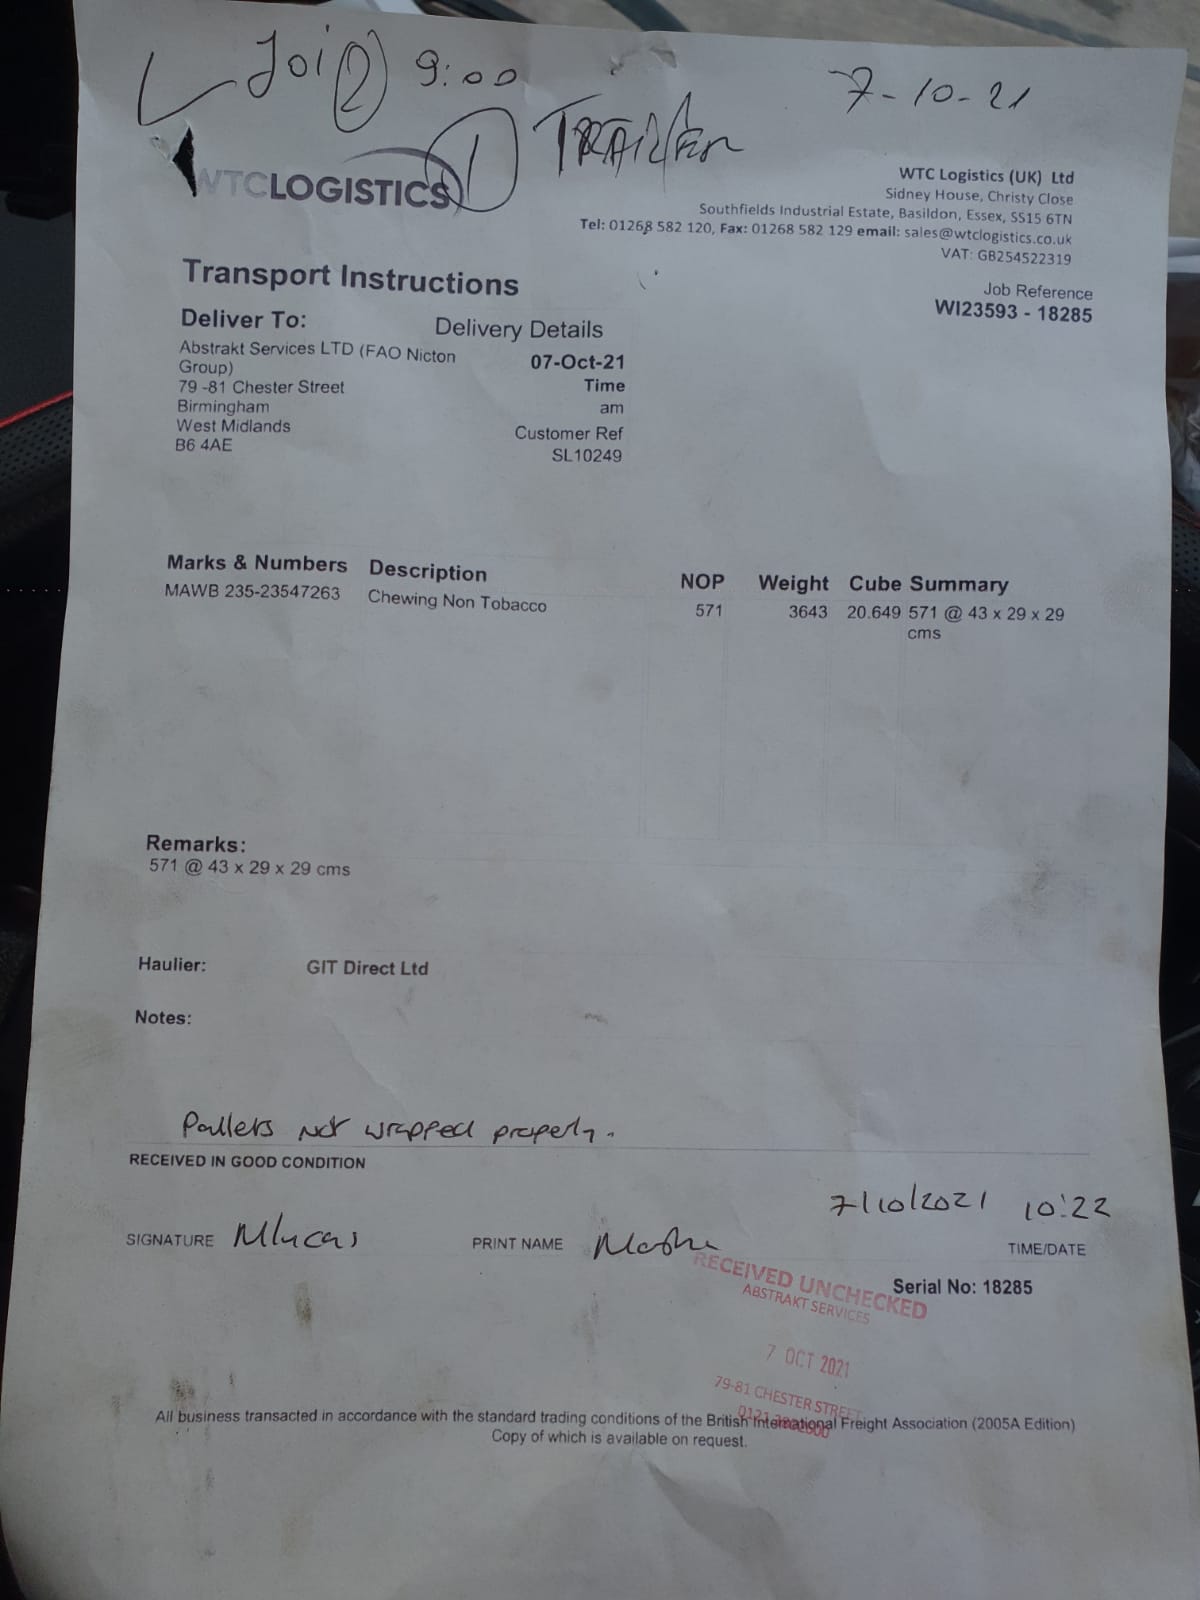 Joi 2 9:00 7-10-21
1 TRAILER
WTCLOGISTICS
WTC Logistics (UK) Ltd
Sidney House, Christy Close
Southfields Industrial Estate, Basildon, Essex, SS15 6TN
Tel: 01268 582 120, Fax: 01268 582 129 email: sales@wtclogistics.co.uk
VAT: GB254522319
Transport Instructions
Job Reference
WI23593 - 18285
Deliver To:
Abstrakt Services LTD (FAO Nicton
Group)
79 -81 Chester Street
Birmingham
West Midlands
B6 4AE
Delivery Details
07-Oct-21
Time
am
Customer Ref
SL10249
Marks & Numbers Description NOP Weight Cube Summary
MAWB 235-23547263 Chewing Non Tobacco 571 3643 20.649 571 @ 43 x 29 x 29
cms
Remarks:
571 @ 43 x 29 x 29 cms
Haulier: GIT Direct Ltd
Notes:
Pallets not wrapped properly.
RECEIVED IN GOOD CONDITION
7/10/2021 10:22
SIGNATURE Mlucas PRINT NAME TIME/DATE
Serial No: 18285
RECEIVED UNCHECKED
ABSTRAKT SERVICES
7 OCT 2021
79-81 CHESTER STREET
All business transacted in accordance with the standard trading conditions of the British International Freight Association (2005A Edition)
Copy of which is available on request.